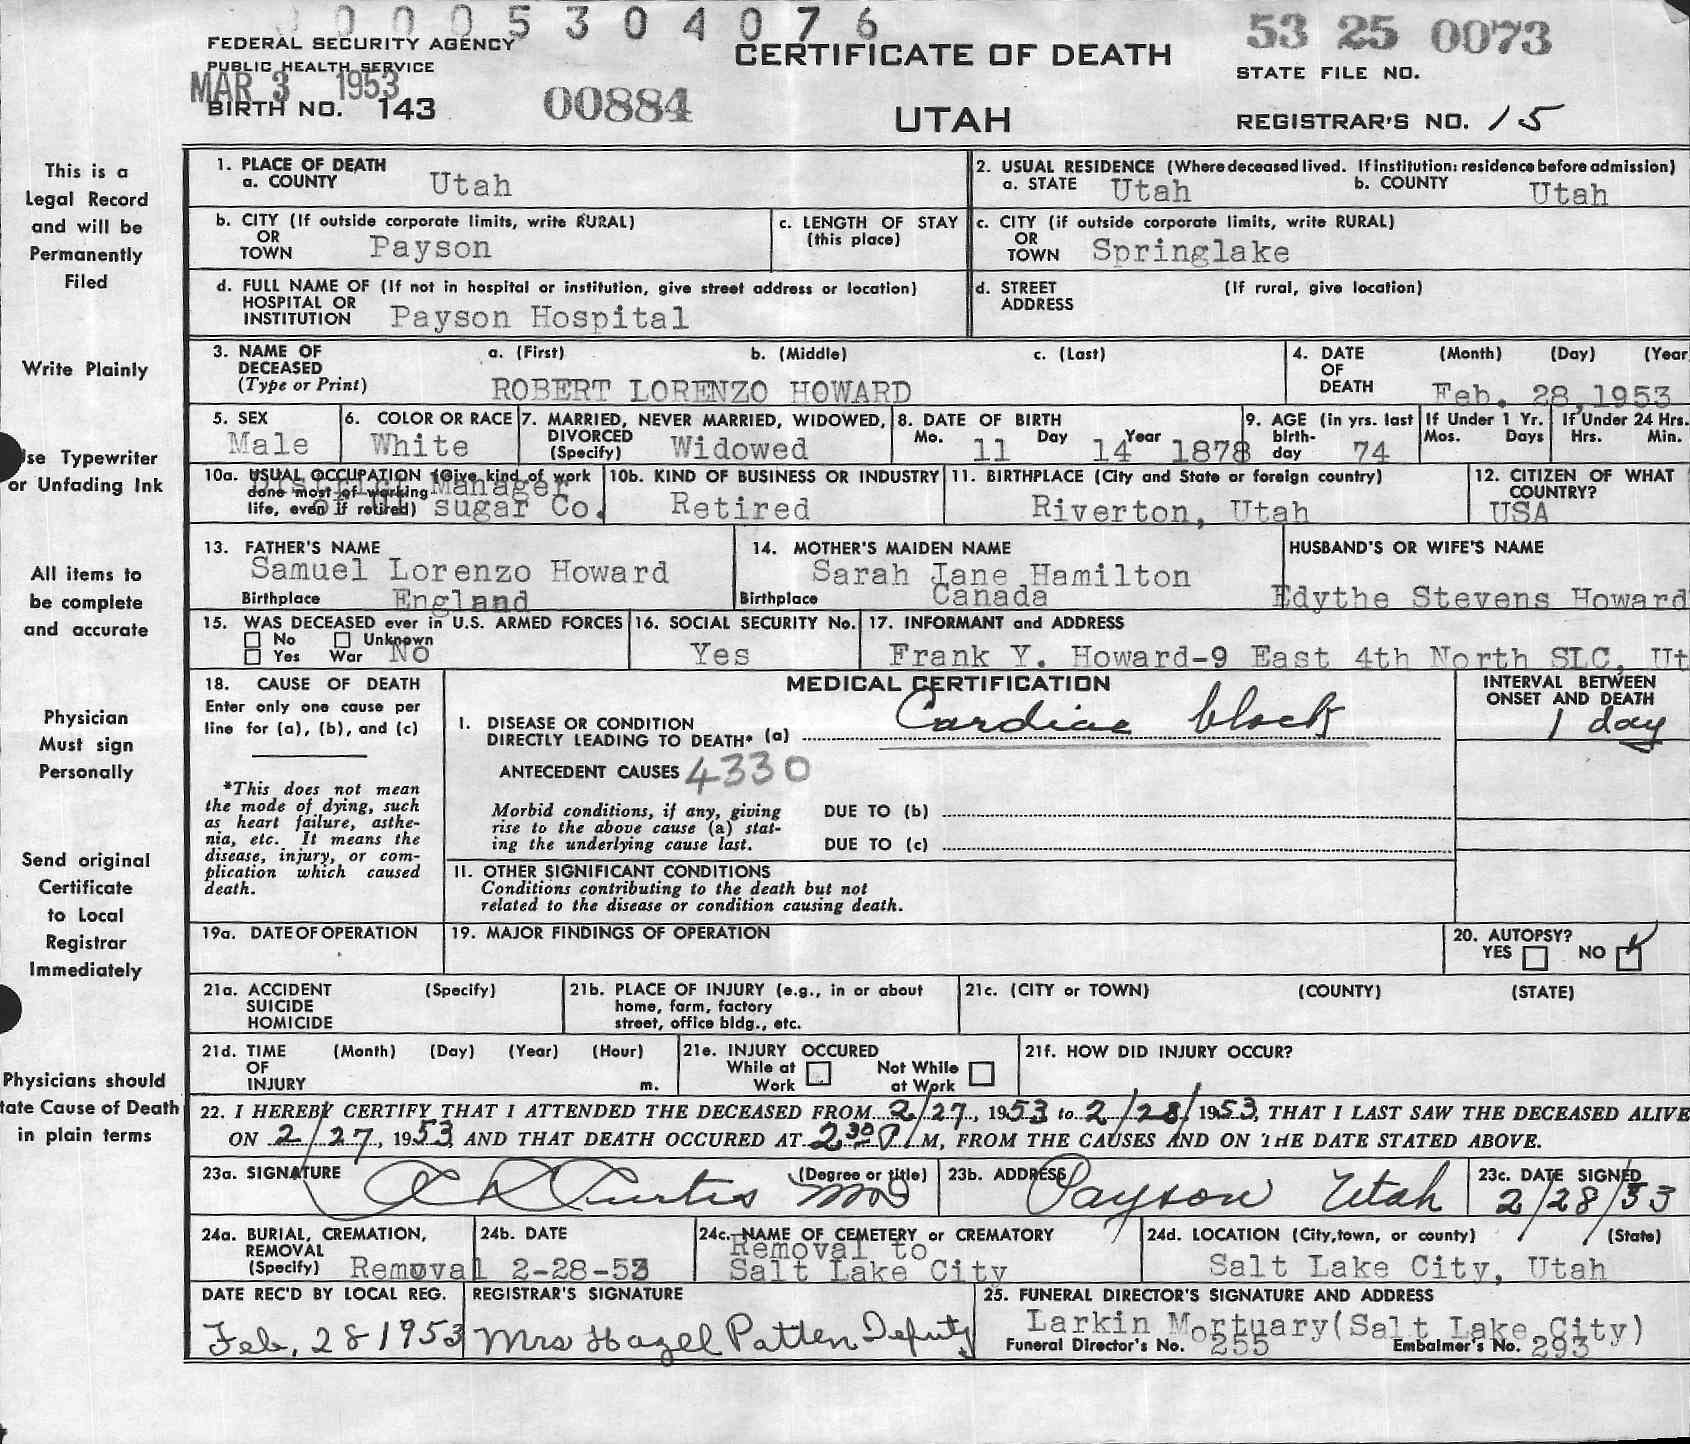 0005304076
FEDERAL SECURITY AGENCY
PUBLIC HEALTH SERVICE
MAR 3 1953
BIRTH NO. 143
00884
CERTIFICATE OF DEATH
UTAH
53 25 0073
STATE FILE NO.
REGISTRAR'S NO. 15
This is a
Legal Record
and will be
Permanently
Filed
Write Plainly
se Typewriter
or Unfading Ink
All items to
be complete
and accurate
Physician
Must sign
Personally
Send original
Certificate
to Local
Registrar
Immediately
Physicians should
tate Cause of Death
in plain terms
1. PLACE OF DEATH
a. COUNTY Utah
2. USUAL RESIDENCE (Where deceased lived. If institution: residence before admission)
a. STATE Utah b. COUNTY Utah
b. CITY (If outside corporate limits, write RURAL)
OR
TOWN Payson
c. LENGTH OF STAY
(this place)
c. CITY (if outside corporate limits, write RURAL)
OR
TOWN Springlake
d. FULL NAME OF (If not in hospital or institution, give street address or location)
HOSPITAL OR
INSTITUTION Payson Hospital
d. STREET (If rural, give location)
ADDRESS
3. NAME OF a. (First) b. (Middle) c. (Last)
DECEASED
(Type or Print) ROBERT LORENZO HOWARD
4. DATE (Month) (Day) (Year
OF
DEATH Feb. 28,1953
5. SEX
Male
6. COLOR OR RACE
White
7. MARRIED, NEVER MARRIED, WIDOWED,
DIVORCED
(Specify) Widowed
8. DATE OF BIRTH
Mo. 11 Day 14 Year 1878
9. AGE (in yrs. last
birth-
day 74
If Under 1 Yr.
Mos. Days
If Under 24 Hrs.
Hrs. Min.
10a. USUAL OCCUPATION (Give kind of work
done most of working Manager
life, even if retired) sugar Co.
10b. KIND OF BUSINESS OR INDUSTRY
Retired
11. BIRTHPLACE (City and State or foreign country)
Riverton, Utah
12. CITIZEN OF WHAT
COUNTRY?
USA
13. FATHER'S NAME
Samuel Lorenzo Howard
Birthplace England
14. MOTHER'S MAIDEN NAME
Sarah Jane Hamilton
Birthplace Canada
HUSBAND'S OR WIFE'S NAME
Edythe Stevens Howard
15. WAS DECEASED ever in U.S. ARMED FORCES
No Unknown
Yes War No
16. SOCIAL SECURITY No.
Yes
17. INFORMANT and ADDRESS
Frank Y. Howard-9 East 4th North SLC, Ut
18. CAUSE OF DEATH
Enter only one cause per
line for (a), (b), and (c)
*This does not mean
the mode of dying, such
as heart failure, asthe-
nia, etc. It means the
disease, injury, or com-
plication which caused
death.
MEDICAL CERTIFICATION
I. DISEASE OR CONDITION
DIRECTLY LEADING TO DEATH* (a) Cardiac block
ANTECEDENT CAUSES 4330
Morbid conditions, if any, giving
rise to the above cause (a) stat-
ing the underlying cause last.
DUE TO (b)
DUE TO (c)
II. OTHER SIGNIFICANT CONDITIONS
Conditions contributing to the death but not
related to the disease or condition causing death.
INTERVAL BETWEEN
ONSET AND DEATH
1 day
19a. DATE OF OPERATION
19. MAJOR FINDINGS OF OPERATION
20. AUTOPSY?
YES NO
21a. ACCIDENT (Specify)
SUICIDE
HOMICIDE
21b. PLACE OF INJURY (e.g., in or about
home, farm, factory
street, office bldg., etc.
21c. (CITY or TOWN) (COUNTY) (STATE)
21d. TIME (Month) (Day) (Year) (Hour)
OF
INJURY m.
21e. INJURY OCCURED
While at Not While
Work at Work
21f. HOW DID INJURY OCCUR?
22. I HEREBY CERTIFY THAT I ATTENDED THE DECEASED FROM 2/27, 1953 to 2/28/1953, THAT I LAST SAW THE DECEASED ALIVE
ON 2/27, 1953 AND THAT DEATH OCCURED AT 2:30 M, FROM THE CAUSES AND ON THE DATE STATED ABOVE.
23a. SIGNATURE Curtis MD (Degree or title)
23b. ADDRESS Payson Utah
23c. DATE SIGNED
2/28/53
24a. BURIAL, CREMATION,
REMOVAL
(Specify) Removal
24b. DATE
2-28-53
24c. NAME OF CEMETERY or CREMATORY
Removal to
Salt Lake City
24d. LOCATION (City,town, or county) (State)
Salt Lake City, Utah
DATE REC'D BY LOCAL REG.
Feb, 28 1953
REGISTRAR'S SIGNATURE
Mrs Hazel Patten Deputy
25. FUNERAL DIRECTOR'S SIGNATURE AND ADDRESS
Larkin Mortuary(Salt Lake City)
Funeral Director's No. 255 Embalmer's No. 293